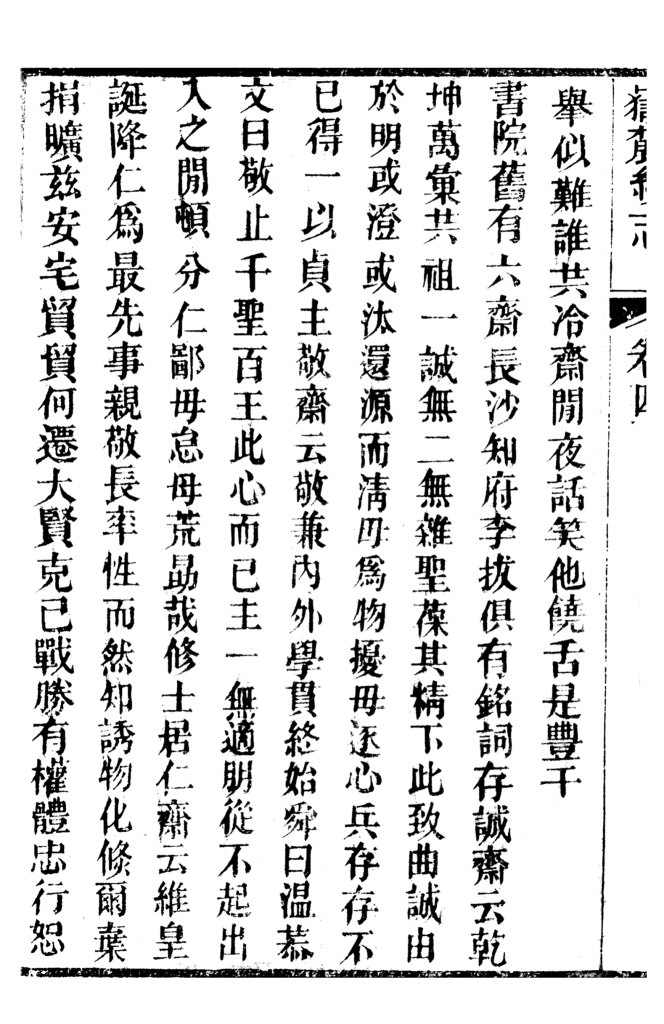 嶽麓續志
卷四
舉似難誰共冷齋閒夜話笑他饒舌是豐干
書院舊有六齋長沙知府李拔俱有銘詞存誠齋云乾
坤萬彙共祖一誠無二無雜聖葆其精下此致曲誠由
於明或澄或汰還源而淸毋爲物擾毋逐心兵存存不
已得一以貞主敬齋云敬兼內外學貫終始舜曰溫恭
文曰敬止千聖百王此心而已主一無適朋從不起出
入之閒頓分仁鄙毋怠毋荒勗哉修士居仁齋云維皇
誕降仁爲最先事親敬長率性而然知誘物化倐爾棄
捐曠兹安宅貿貿何遷大賢克己戰勝有權體忠行恕